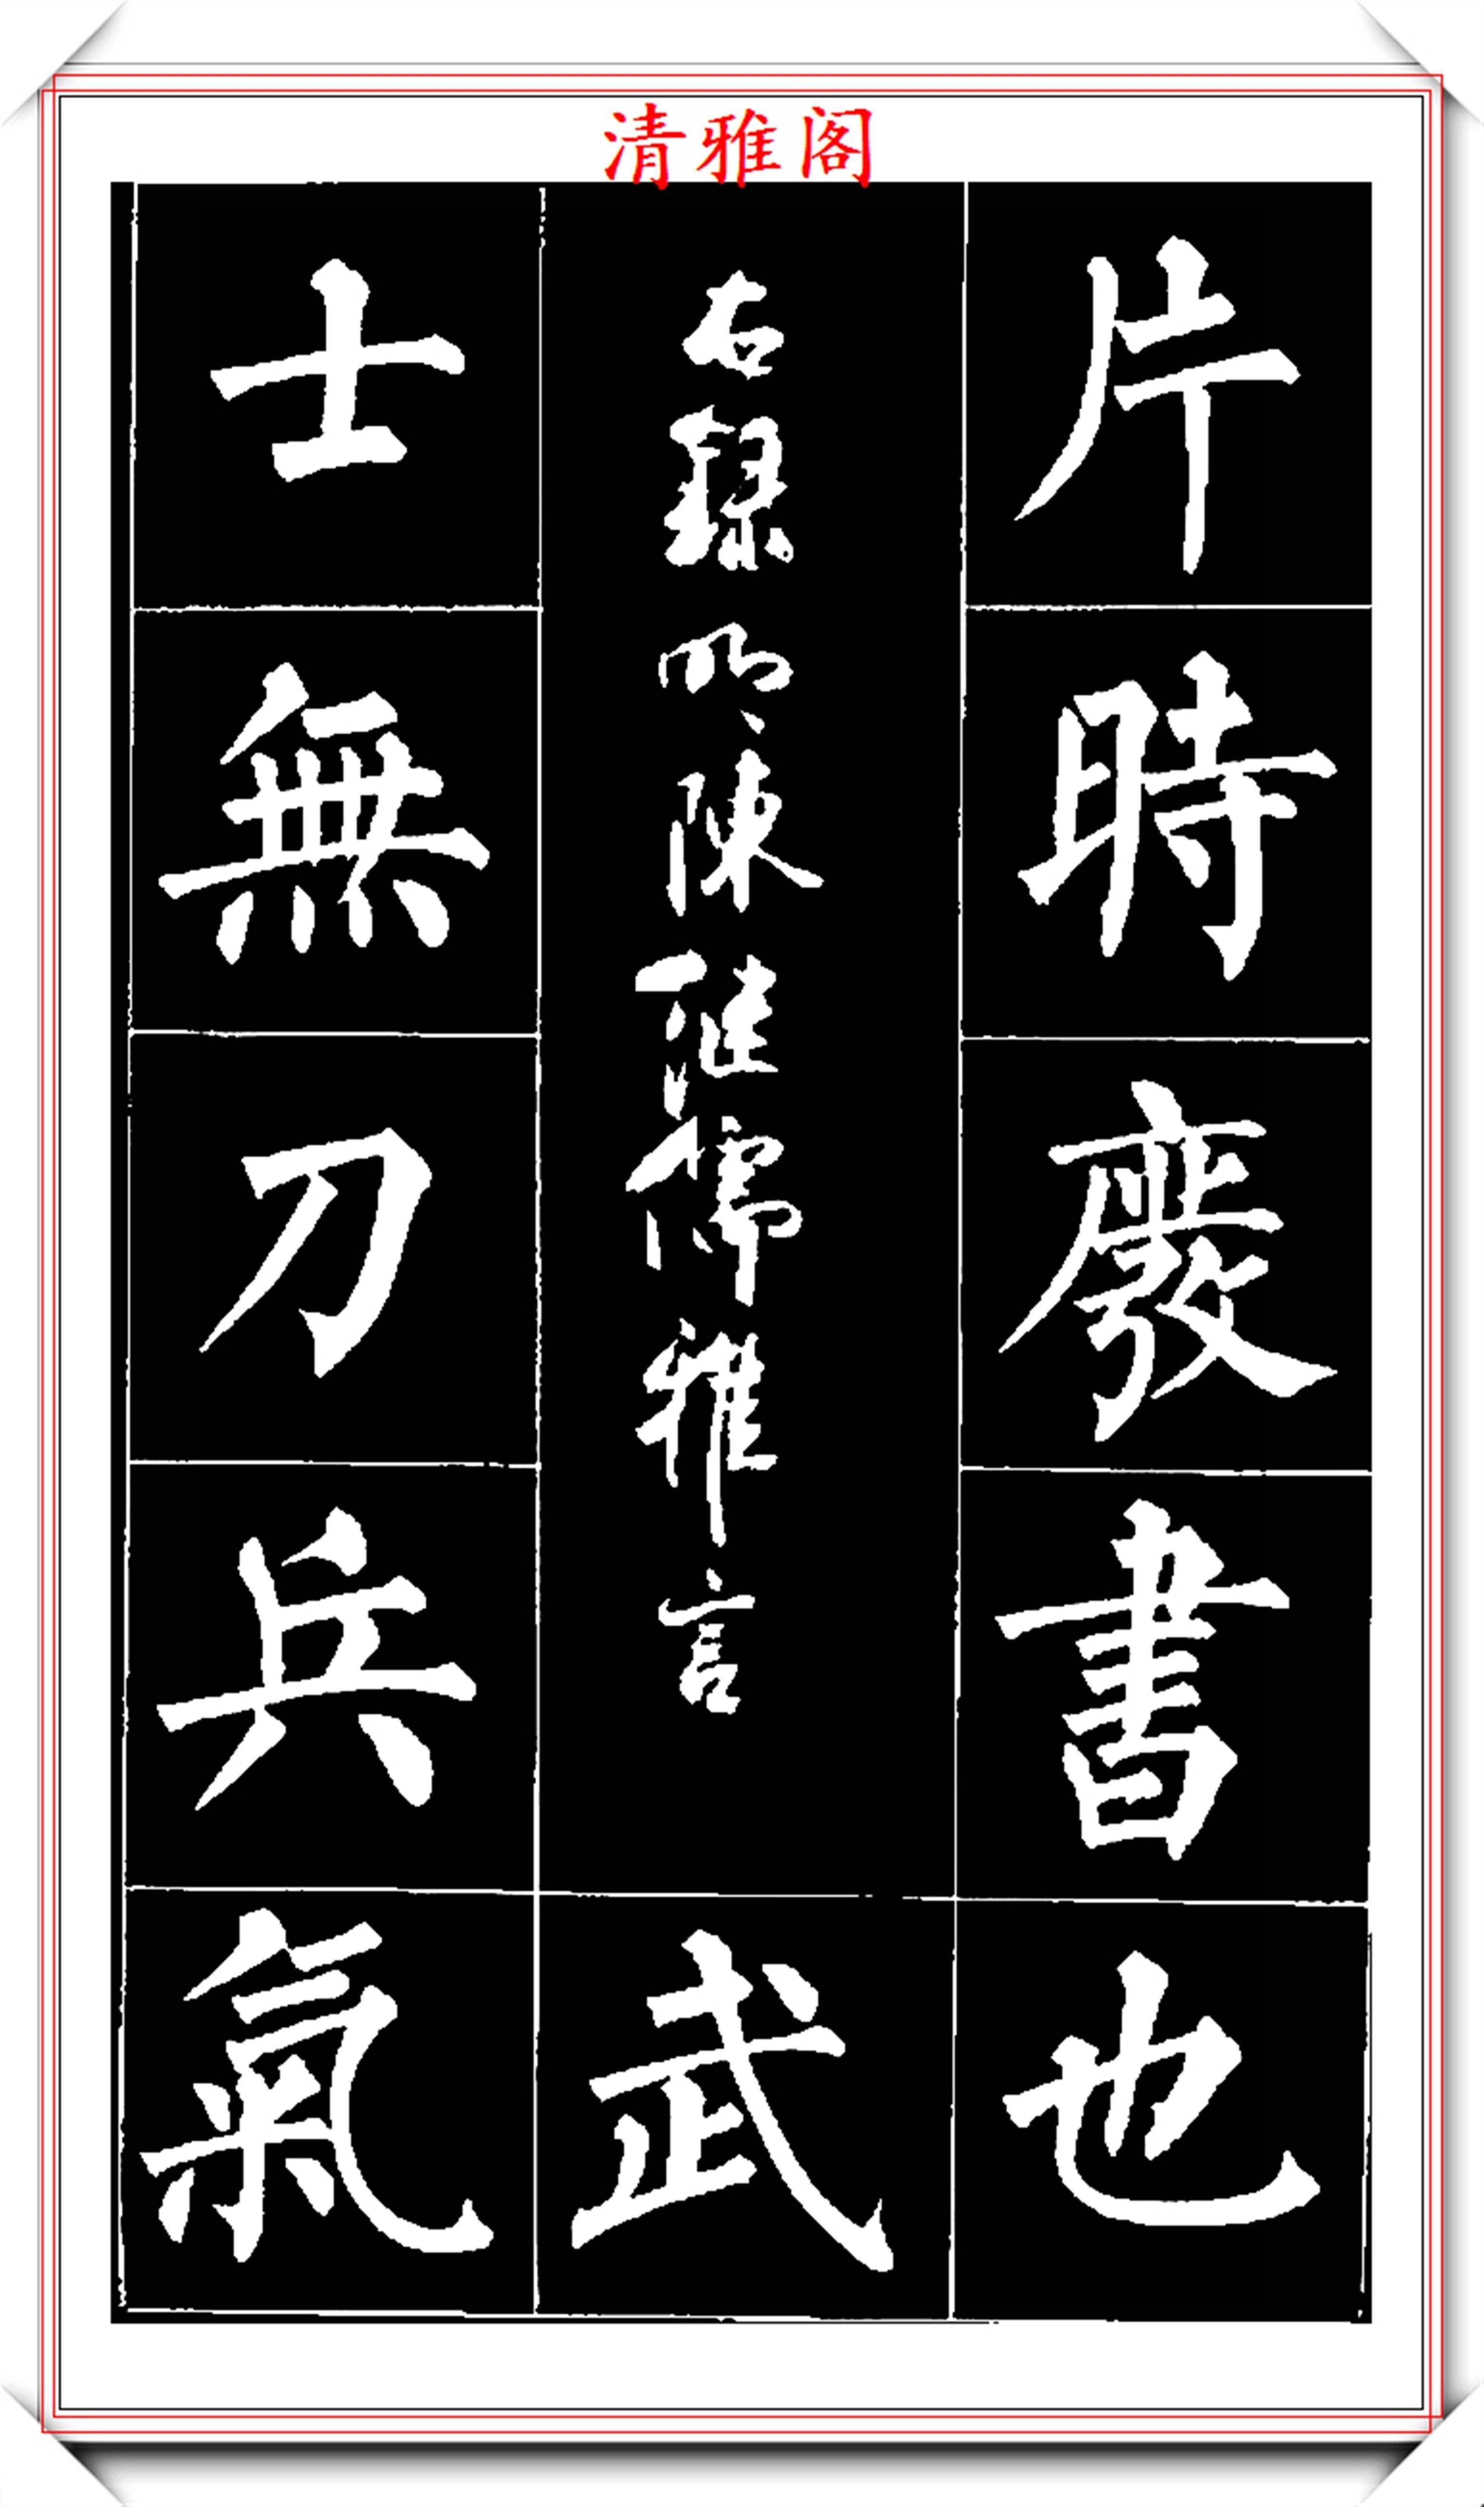 清雅阁
片時廢書也
右錄明陳繼儒雅言
武
士無刀兵氣